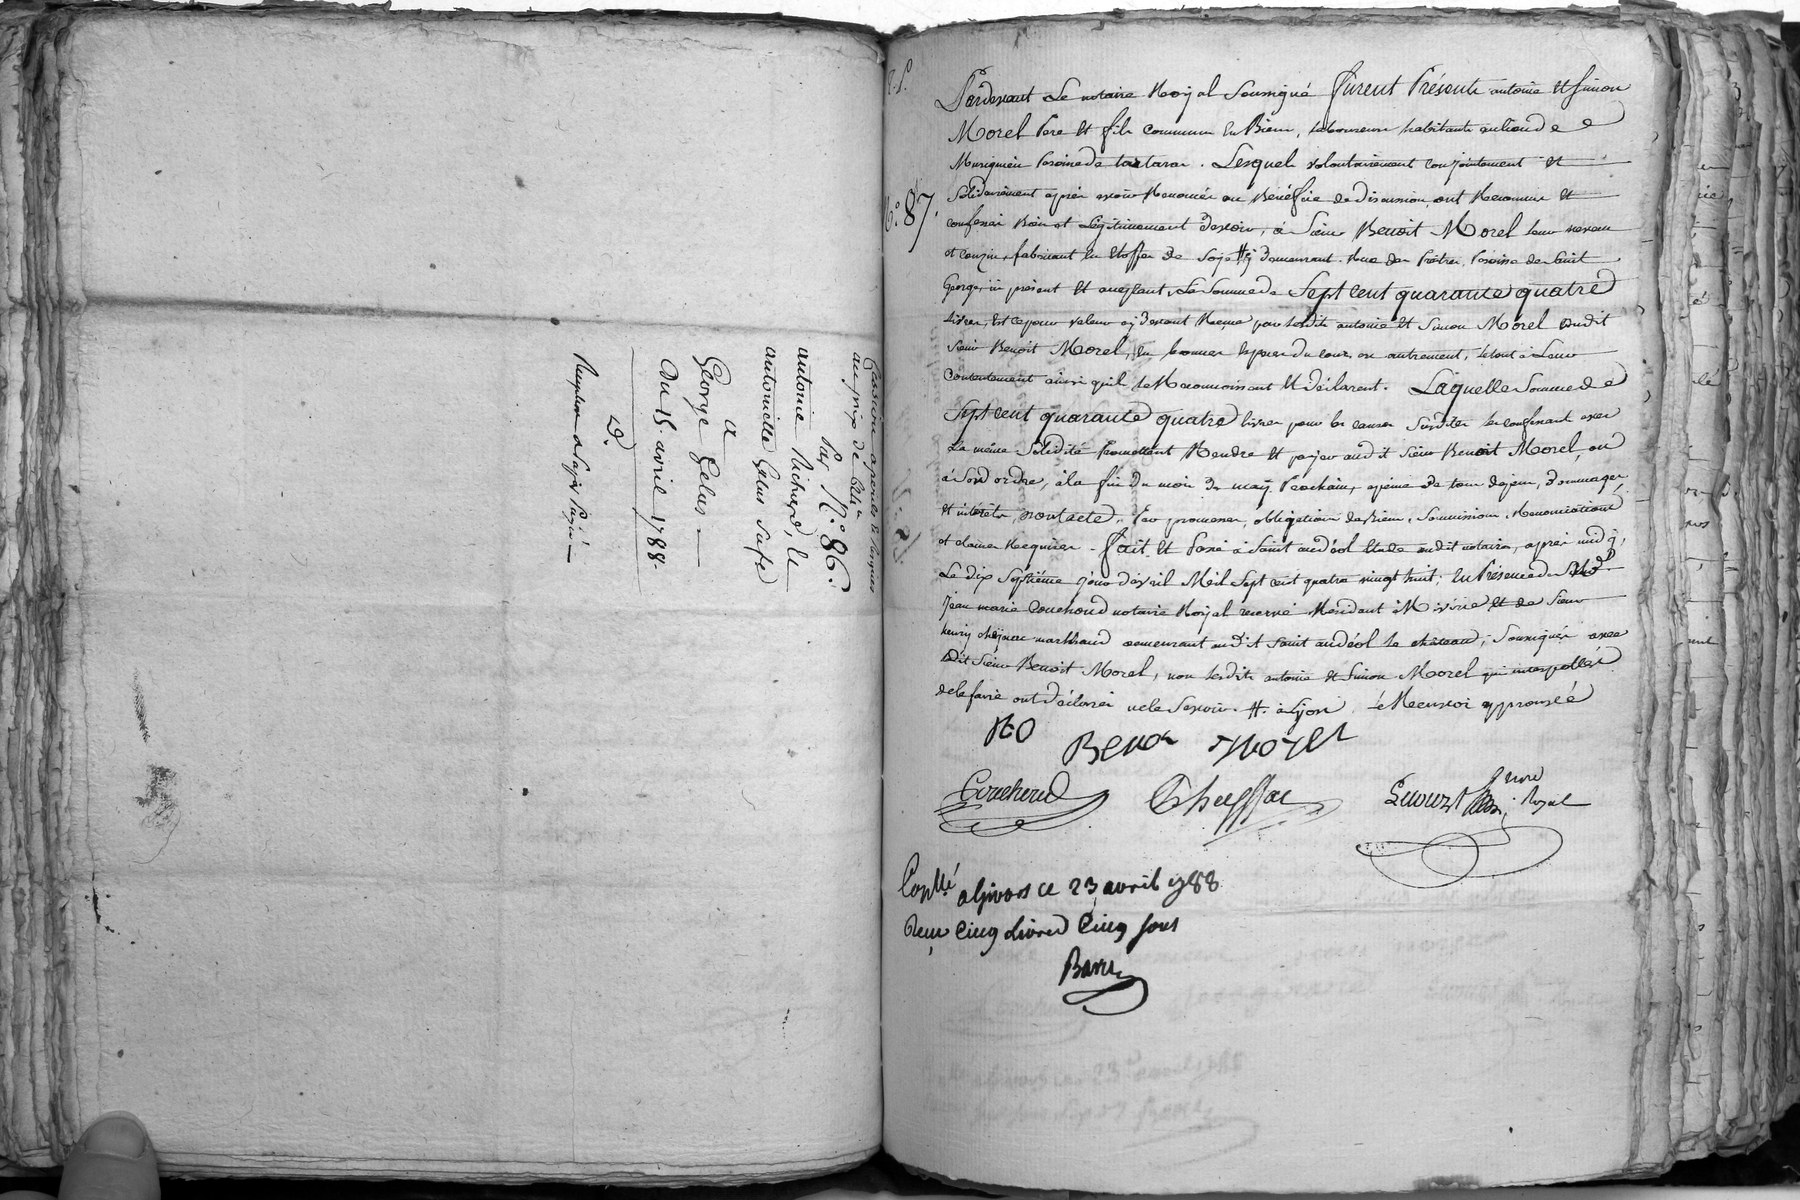 Cession aperüe & surquis
au prix de
Par N.° 86.
antoine Richard, &
antoinette Gelas Safe
a
George Gelas
du 15 avril 1788.
L9.
N.° 87.
Pardevant Le notaire Royal Soussigné Furent Présents antoine & Simon
Morel Pere & fils commun en Biens, Laboureurs habitants au lieu de
Paroisse de tartaras. Lesquels volontairement conjointement &
Solidairement après avoir Renoncé au Bénéfice de discussion, ont Reconnu &
confessé Bien et Légitimement devoir, à Sieur Benoit Morel Leur neveu
et couzin, fabricant En Etoffes de Soye # y demeurant Rue des Prêtres, Paroisse de Saint
George, ici présent & acceptant, La Somme de Sept cent quarante quatre
Livres, Et ce pour valeur cy devant Recue par lesdits antoine & Simon Morel dudit
Sieur Benoit Morel, en bonnes Especes du cours ou autrement, Le tout à Leur
Contentement ainsi qu'il Le Reconnoissent & déclarent. Laquelle Somme de
Sept cent quarante quatre livres pour les causes Susdites Les confessant avec
La même Solidité Promettent Rendre & payer audit Sieur Benoit Morel, ou
à Son ordre, à la fin du mois de may Prochain, apeine de tous depens, dommages
& intérêts, Par promesses, obligations de Biens, Soumissions, Renonciations
et clauses Requises. Fait & Passé à Saint andéol Etude dudit notaire, après midy,
Le dix Septième jour d'avril Mil Sept cent quatre vingt huit, En Présence de
Jean marie Couchoud notaire Royal reservé Résidant à & de Sieur
henry marchand demeurant audit Saint andéol Le château, Soussignés avec
Ledit Sieur Benoit Morel, non Lesdits antoine & Simon Morel qui interpellés
de le faire ont déclaré ne le Savoir. # à Lyon Le Renvoi approuvé
Benoit morel
Couchoud
Royal
Con.llé a Givors ce 23 avril 1788
Reçu Cinq Livres Cinq Sous